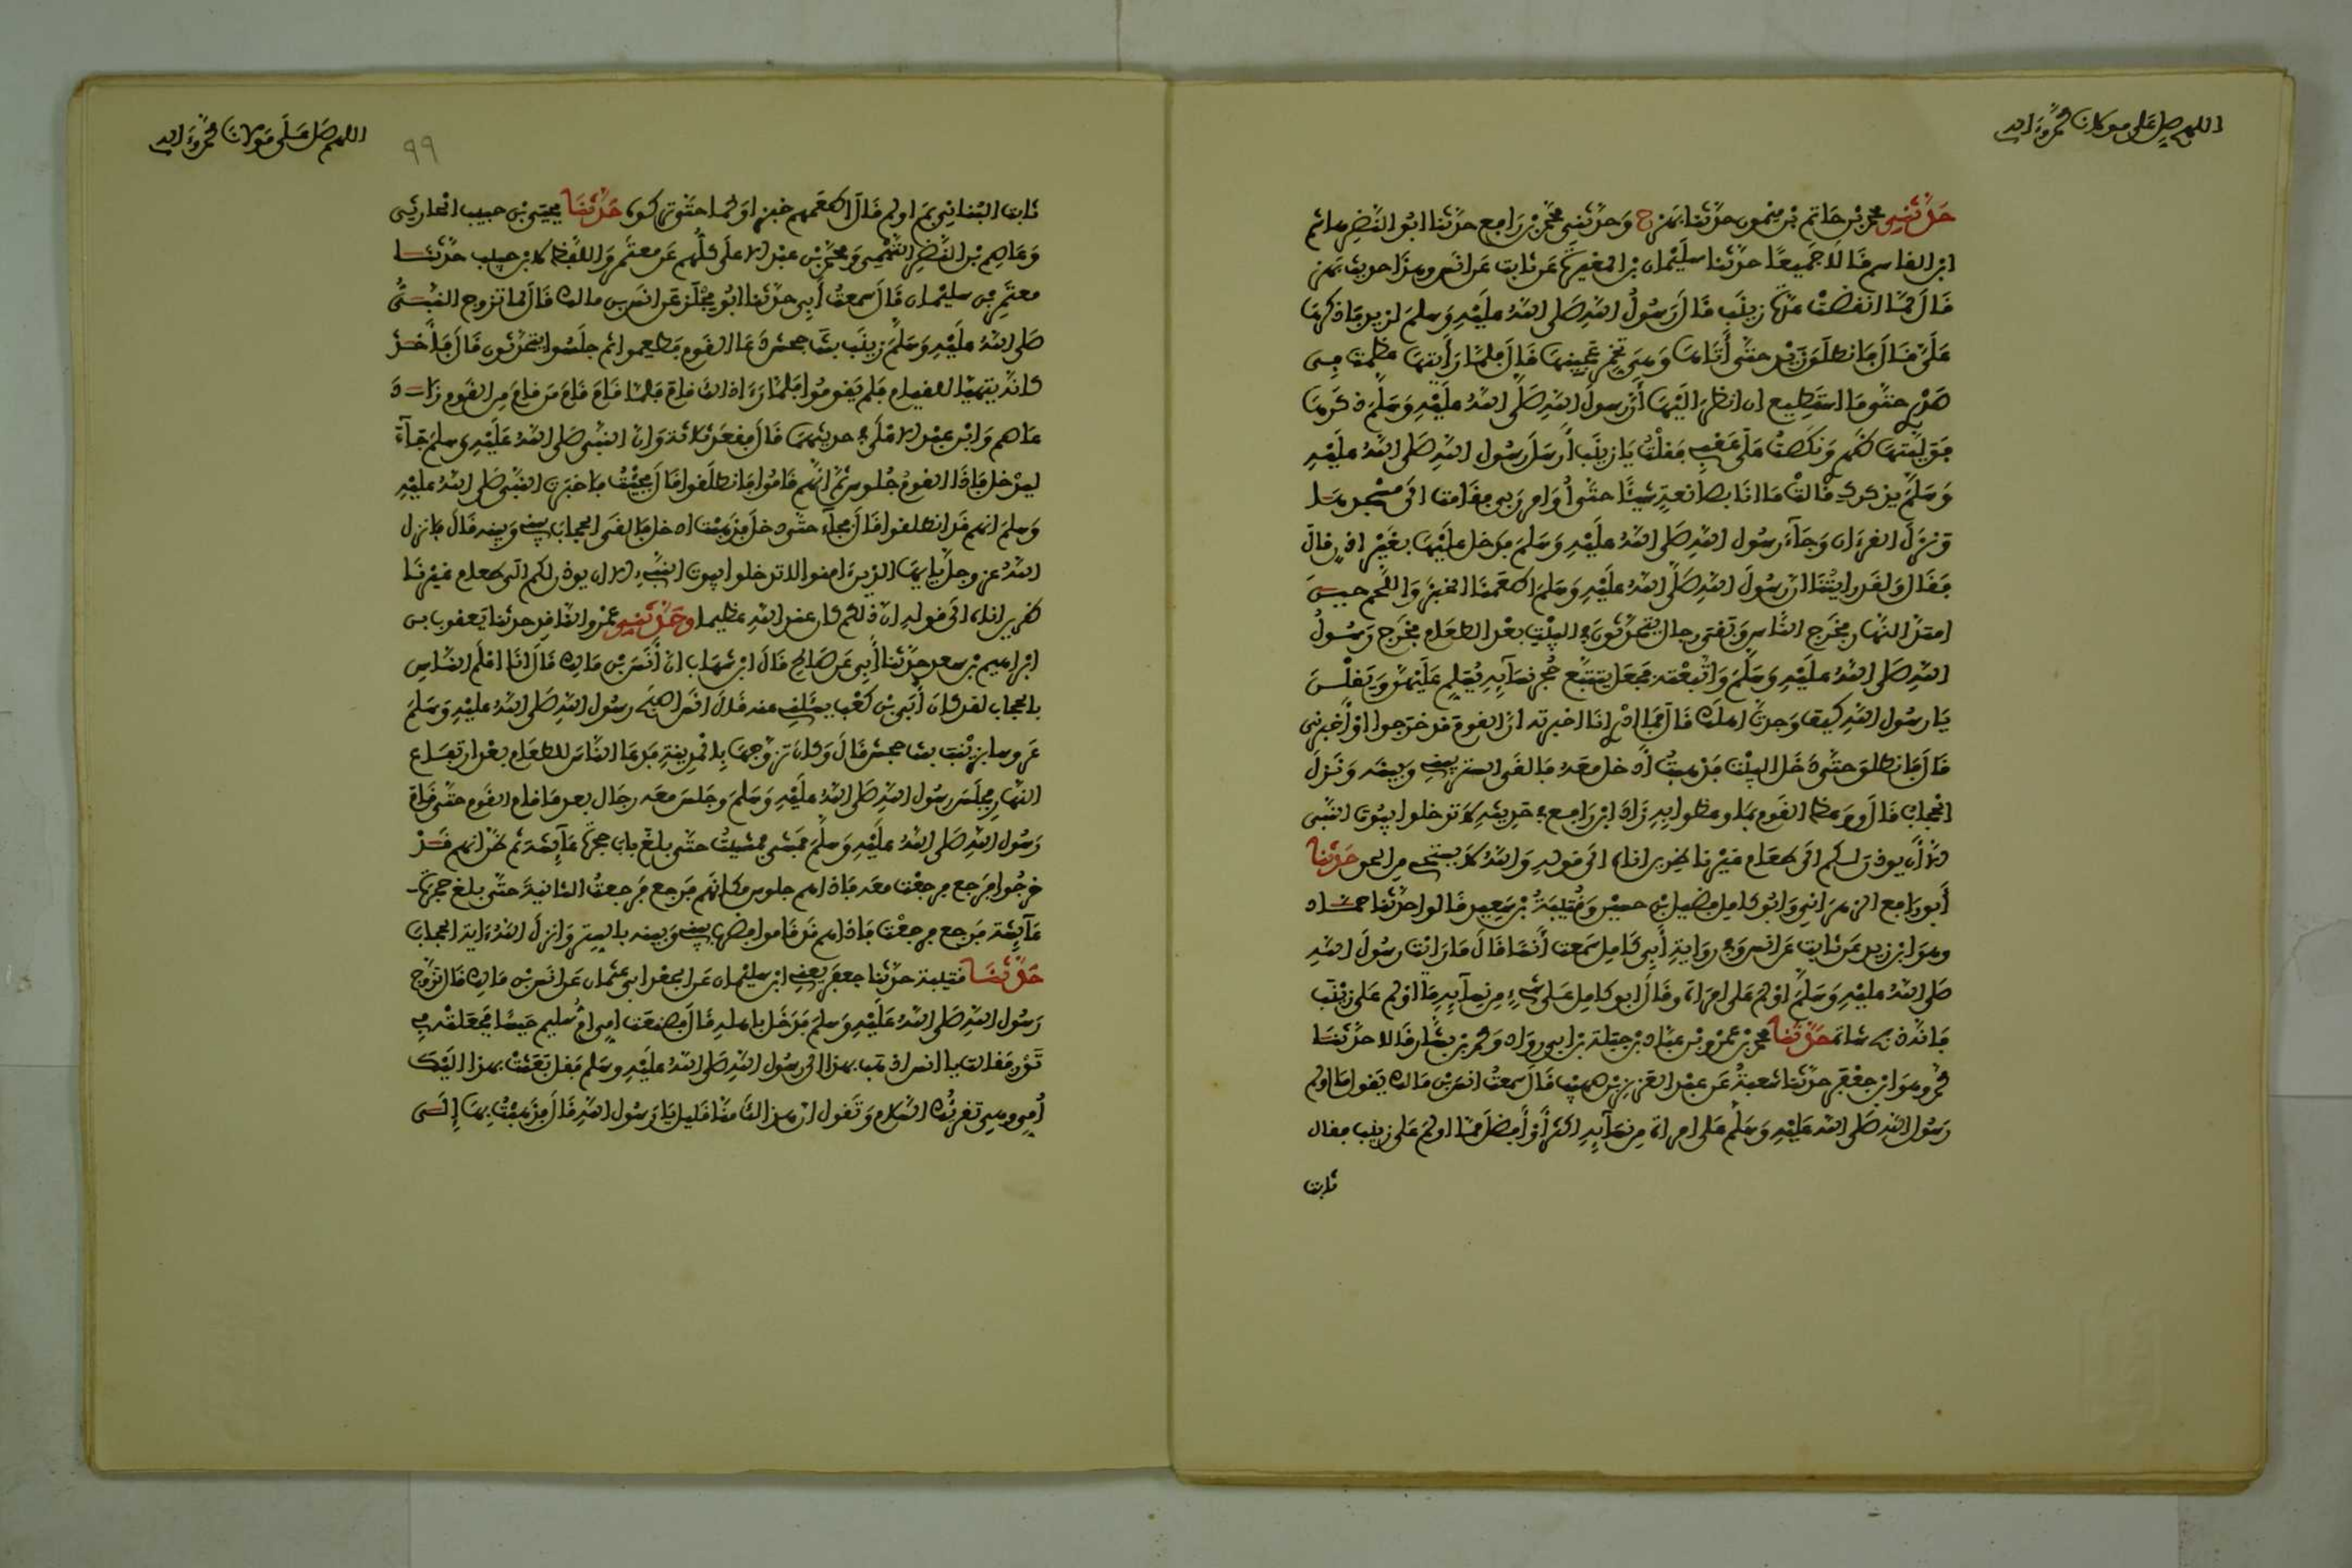 اللهم صل على مولانا محمد وءاله
حدثني محمد بن حاتم بن ميمون حدثنا بهز ح وحدثني محمد بن رافع حدثنا ابو النضر هاشم
ابن القاسم قالا جميعا حدثنا سليمان بن المغيرة عن ثابت عن انس وهذا حديث بهز
قال لما انقضت عدة زينب قال رسول الله صلى الله عليه وسلم لزيد فاذكرها
علي قال فانطلق زيد حتى أتاها وهي تخمر عجينها قال فلما رأيتها عظمت في
صدري حتى ما استطيع ان انظر اليها أن رسول الله صلى الله عليه وسلم ذكرها
فوليتها ظهري ونكصت على عقبي فقلت يا زينب أرسل رسول الله صلى الله عليه
وسلم يذكرك قالت ما انا بصانعة شيئا حتى أوامر ربي فقامت الى مسجدها
ونزل القرءان وجاء رسول الله صلى الله عليه وسلم فدخل عليها بغير اذن قال
فقال ولقد رايتنا ان رسول الله صلى الله عليه وسلم اطعمنا الخبز واللحم حين
امتد النهار فخرج الناس وبقي رجال يتحدثون في البيت بعد الطعام فخرج رسول
الله صلى الله عليه وسلم واتبعته فجعل يتتبع حجر نسآيه يسلم عليهن ويقلن
يا رسول الله كيف وجدت اهلك قال فما ادري انا اخبرته ان القوم قد خرجوا او أخبرني
قال فانطلق حتى دخل البيت فذهبت أدخل معه فالقى الستر بيني وبينه ونزل
الحجاب قال ووعظ القوم بما وعظوا به زاد ابن رافع في حديثه لا تدخلوا بيوت النبي
الا أن يوذن لكم الى طعام غير ناظرين اناه الى قوله والله لا يستحي من الحق حدثنا
أبو الربيع الزهراني وابو كامل فضيل بن حسين وقتيبة بن سعيد قالوا حدثنا حماد
وهو ابن زيد عن ثابت عن انس وفي رواية أبي كامل سمعت أنسا قال ما رايت رسول الله
صلى الله عليه وسلم اولم على امراة وقال ابو كامل على شيء من نسآيه ما اولم على زينب
فانه ذبح شاة حدثنا محمد بن عمرو بن عباد بن جبلة بن ابي رواد ومحمد بن بشار قالا حدثنا
محمد وهو ابن جعفر حدثنا شعبة عن عبد العزيز بن صهيب قال سمعت انس بن مالك يقول ما اولم
رسول الله صلى الله عليه وسلم على امراة من نسآيه اكثر أو أفضل مما اولم على زينب فقال
ثابت
اللهم صل على مولانا محمد وءاله
٩٩
ثابت البناني بم اولم قال اطعمهم خبزا ولحما حتى تركوه حدثنا يحيى بن حبيب الحارثي
وعاصم بن النضر التيمي ومحمد بن عبد الاعلى كلهم عن معتمر واللفظ لابن حبيب حدثنا
معتمر بن سليمان قال سمعت أبي حدثنا ابو مجلز عن انس بن مالك قال لما تزوج النبي
صلى الله عليه وسلم زينب بنت جحش دعا القوم فطعموا ثم جلسوا يتحدثون قال فاخذ
كانه يتهيا للقيام فلم يقوموا فلما رءا ذلك قام فلما قام قام من قام من القوم زاد
عاصم وابن عبد الاعلى في حديثهما قال فقعد ثلاثة وان النبي صلى الله عليه وسلم جآء
ليدخل فاذا القوم جلوس ثم انهم قاموا فانطلقوا قال فجئت فاخبرت النبي صلى الله عليه
وسلم انهم قد انطلقوا قال فجآء حتى دخل فذهبت ادخل فالقى الحجاب بيني وبينه قال فانزل
الله عز وجل يايها الذين ءامنوا لا تدخلوا بيوت النبي الا ان يوذن لكم الى طعام غير نا
ظرين اناه الى قوله ان ذلكم كان عند الله عظيما وحدثني عمرو الناقد حدثنا يعقوب بن
ابراهيم بن سعد حدثنا أبي عن صالح قال ابن شهاب ان أنس بن مالك قال انا اعلم الناس
بالحجاب لقد كان أبي بن كعب يسئلني عنه قال انس اصبح رسول الله صلى الله عليه وسلم
عروسا بزينب بنت جحش قال وكان تزوجها بالمدينة فدعا الناس للطعام بعد ارتفاع
النهار فجلس رسول الله صلى الله عليه وسلم وجلس معه رجال بعد ما قام القوم حتى قام
رسول الله صلى الله عليه وسلم فمشى فمشيت حتى بلغ باب حجرة عآيشة ثم ظن انهم قد
خرجوا فرجع فرجعت معه فاذا هم جلوس مكانهم فرجع فرجعت الثانية حتى بلغ حجرة
عآيشة فرجع فرجعت فاذا هم قد قاموا فضرب بيني وبينه بالستر وانزل الله ءاية الحجاب
حدثنا قتيبة حدثنا جعفر يعني ابن سليمان عن الجعد ابي عثمان عن انس بن مالك قال تزوج
رسول الله صلى الله عليه وسلم فدخل باهله قال فصنعت امي ام سليم حيسا فجعلته في
تور فقالت يا انس اذهب بهذا الى رسول الله صلى الله عليه وسلم فقل بعثت بهذا اليك
أمي وهي تقرئك السلام وتقول ان هذا لك منا قليل يا رسول الله قال فذهبت بها إلى